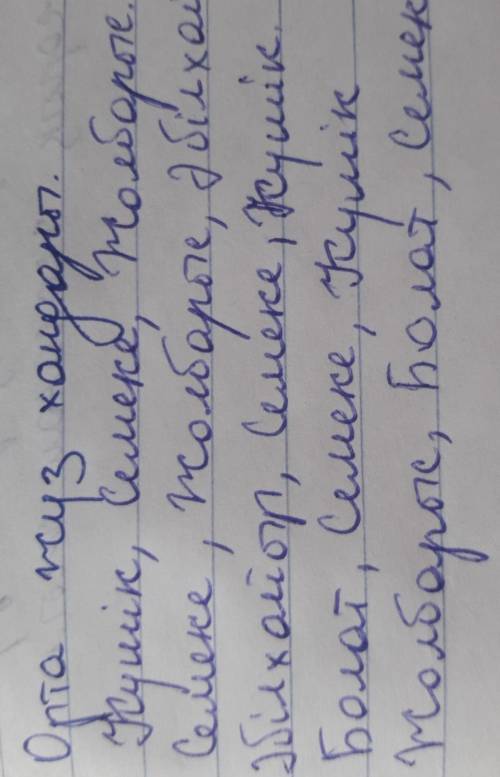 Орта жүз хандары.
Күшік, Семеке, Жолбарыс.
Семеке, Жолбарыс, Әбілхай
Әбілхайыр, Семеке, Күшік.
Болат, Семеке, Күшік
Жолбарыс, Болат, Семек